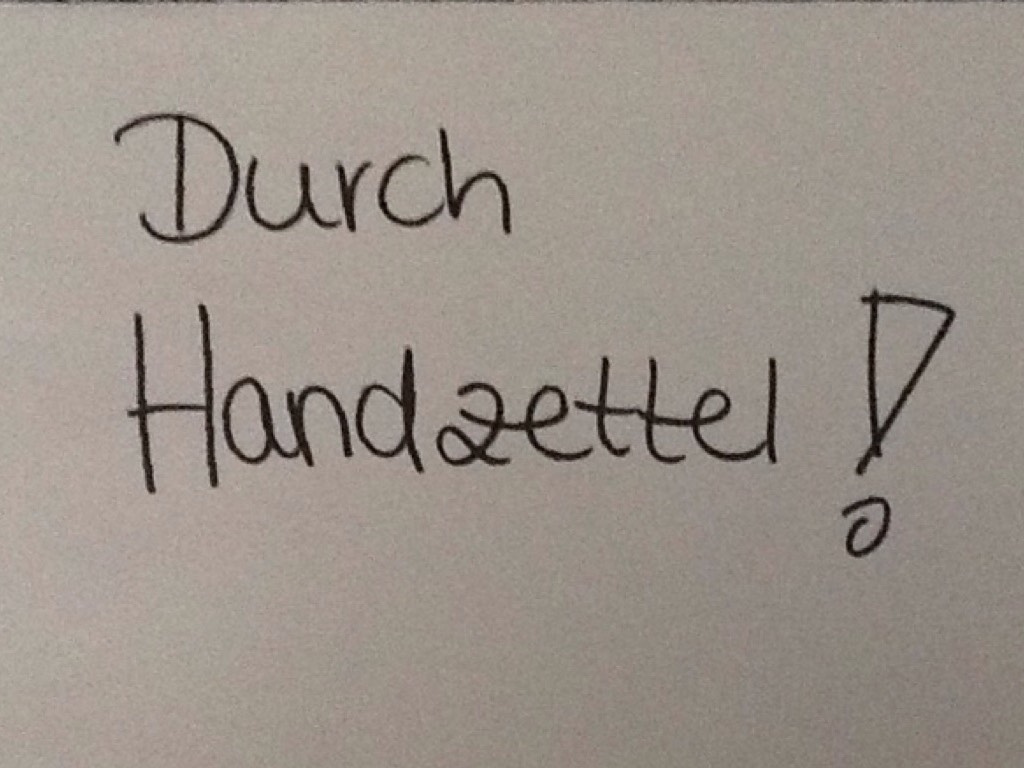 Durch
Handzettel!